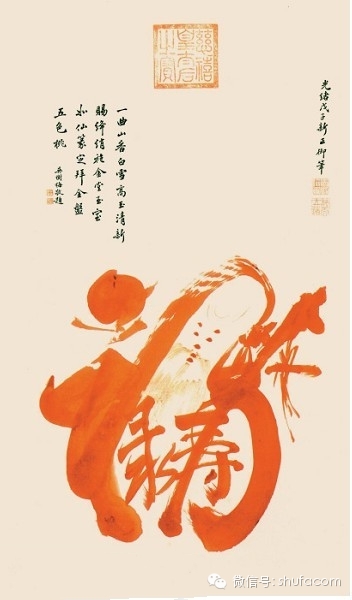 慈禧皇太后之寶
光緒戊子新正御筆
一曲山香白雪高玉清新
賜絳綃袍金堂玉室
如仙篆定拜金盤
五色桃
吳樹梅敬題
祿壽
微信号: shufacom